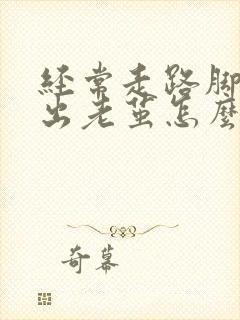 經常走路腳
出老茧怎麽
奇幕